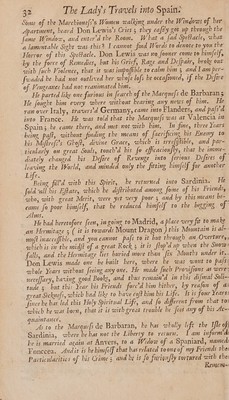 32 The Lady's Travels into Spain.
Some of the Marchioness's Women walking under the Windows of her
Apartment, heard Don Lewis's Cries; they easily got up through the
same Window, and enter'd the Room. What a sad Spectacle, what
a lamentable Sight was this! I cannot find Words to denote to you the
Horror of this Spectacle. Don Lewis was no sooner come to himself,
by the force of Remedies, but his Grief, Rage and Despair, broke out
with such Violence, that it was impossible to calm him; and I am per-
suaded he had not outlived her whose loss he occasioned, if the Desire
of Vengeance had not reanimated him.
He parted like one furious in search of the Marquess de Barbaran;
He sought him every where without hearing any news of him. He
run over Italy, travers'd Germany, came into Flanders, and pass'd
into France. He was told that the Marquess was at Valencia in
Spain; he came there, and met not with him. In fine, three Years
being past, without finding the means of sacrificing his Enemy to
his Mistress's Ghost, divine Grace, which is irresistible, and par-
ticularly on great Souls, touch'd his so efficaciously, that he imme-
diately changed his Desire of Revenge into serious Desires of
leaving the World, and minded only the fitting himself for another
Life.
Being fill'd with this Spirit, he returned into Sardinia. He
sold all his Estate, which he distributed among some of his Friends,
who, with great Merit, were yet very poor; and by this means be-
came so poor himself, that he reduced himself to the begging of
Alms.
He had heretofore seen, in going to Madrid, a place very fit to make
an Hermitage; (it is towards Mount Dragon) this Mountain is al-
most inaccessible, and you cannot pass to it but through an Overture,
which is in the midst of a great Rock; it is stop'd up when the Snow
falls, and the Hermitage lies buried more than six Months under it.
Don Lewis made one be built here, where he was wont to pass
whole Years without seeing any one. He made such Provisions as were
necessary, having good Books, and thus remain'd in this dismal Soli-
tude; but this Year his Friends forc'd him hither, by reason of a
great Sickness, which had like to have cost him his Life. It is four Years
since he has led this Holy Spiritual Life, and so different from that to
which he was born, that it is with great trouble he sees any of his Ac-
quaintance.
As to the Marquess de Barbaran, he has wholly left the Isle of
Sardinia, where he has not the Liberty to return. I am inform'd
he is married again at Anvers, to a Widow of a Spaniard, named
Fonceca. And it is he himself that has related to one of my Friends the
Particularities of his Crime; and he is so furiously tortured with the
Remem-